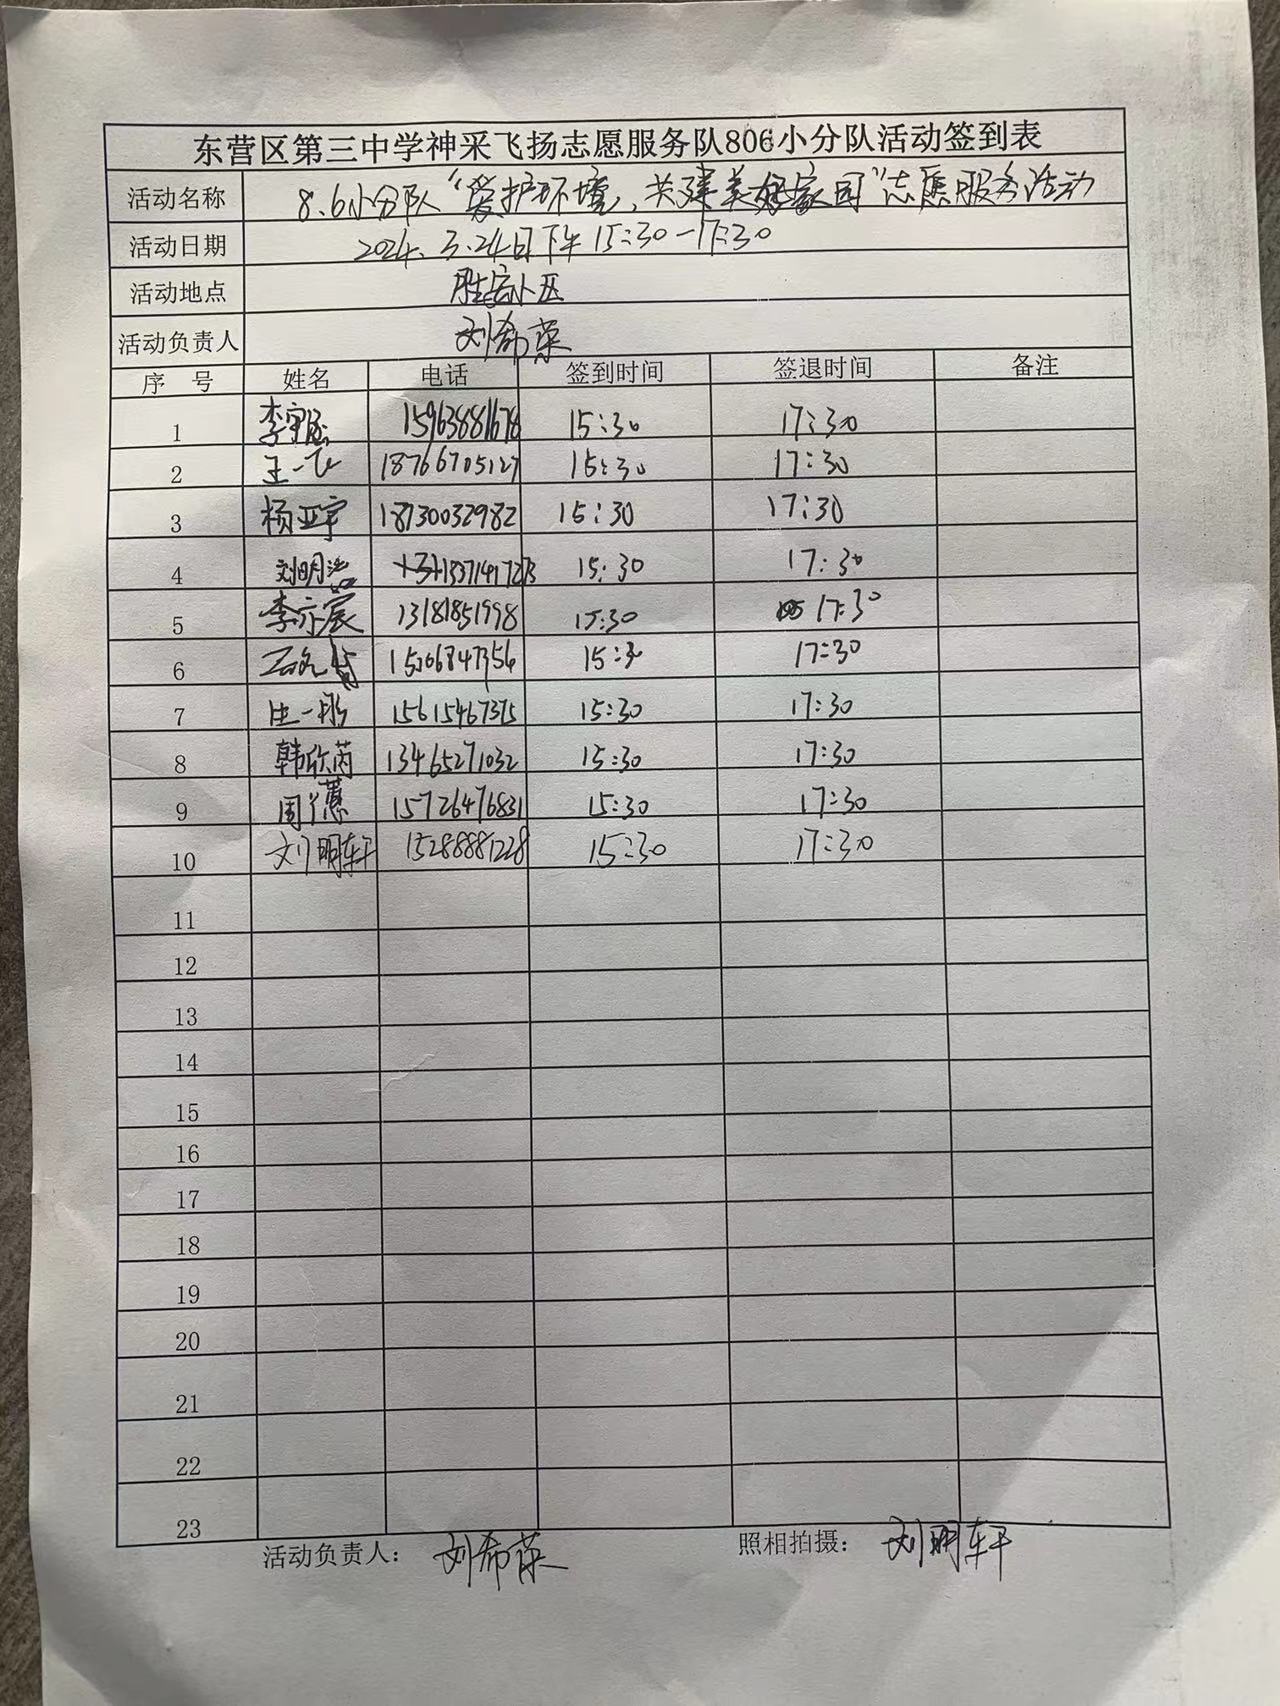 东营区第三中学神采飞扬志愿服务队806小分队活动签到表
活动名称 8.6小分队"爱护环境,共建美好家园"志愿服务活动
活动日期 2024.3.24日下午 15:30-17:30
活动地点 胜宏小区
活动负责人 刘希荣
序 号 姓名 电话 签到时间 签退时间 备注
1 15963881678 15:30 17:30
2 王一飞 18766705127 15:30 17:30
3 杨亚宇 18730032982 15:30 17:30
4 刘明浩 15:30 17:30
5 李亦宸 13181851998 15:30 17:30
6 15:30 17:30
7 15615467375 15:30 17:30
8 韩欣芮 13465271032 15:30 17:30
9 15726476831 15:30 17:30
10 刘明轩 15288881228 15:30 17:30
11
12
13
14
15
16
17
18
19
20
21
22
23
活动负责人: 刘希荣 照相拍摄: 刘明轩